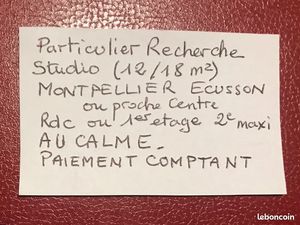 Particulier Recherche
Studio (12/18 m²)
MONTPELLIER ECUSSON
ou proche Centre
Rdc ou 1er etage 2e maxi
AU CALME.
PAIEMENT COMPTANT
leboncoin